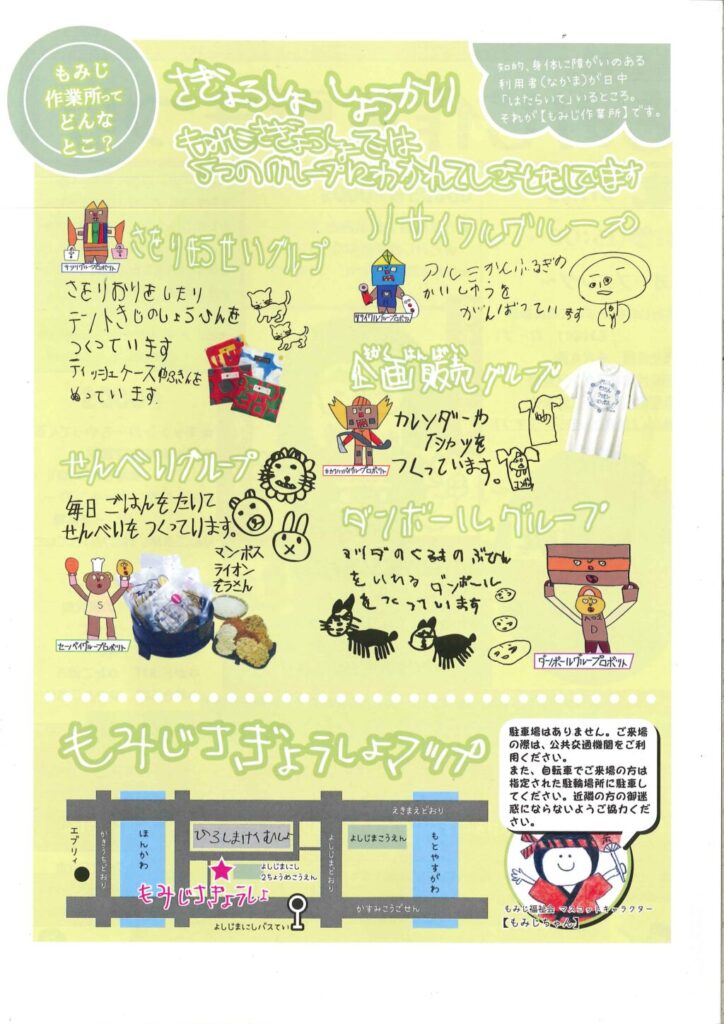 もみじ
作業所って
どんな
とこ？
さぎょうしょ しょうかい
知的、身体に障がいのある
利用者(なかま)が日中
「はたらいて」いるところ。
それが【もみじ作業所】です。
もみじさぎょうしょでは
5つのグループにわかれてしごとをしています
さをり・ほうせいグループ
さをりおりをしたり
テントきじのしょうひんを
つくっています
ティッシュケースやふきんを
ぬっています.
リサイクルグループ
リサイクルグループロボット
アルミかんふるぎの
かいしゅうを
がんばっています
きかくはんばい
企画販売グループ
カレンダーや
Tシャツを
つくっています。
せんべいグループ
毎日ごはんをたいて
せんべいをつくっています。
マンボス
ライオン
ぞうさん
S
センベイグループロボット
ダンボールグループ
マツダのくるまのぶひん
をいれる ダンボール
をつくっています
D
ダンボールグループロボット
もみじさぎょうしょマップ
駐車場はありません。ご来場
の際は、公共交通機関をご利
用ください。
また、自転車でご来場の方は
指定された駐輪場所に駐車し
てください。近隣の方の御迷
惑にならないようご協力くだ
さい。
えきまえどおり
エブリィ
かきうちどおり
ほんかわ
ひろしまけいむしょ
よしじまどおり
よしじまこうえん
もとやすがわ
よしじまにし
2ちょうめこうえん
もみじさぎょうしょ
かすみこうごせん
よしじまにしバスてい
もみじ福祉会 マスコットキャラクター
【もみじちゃん】